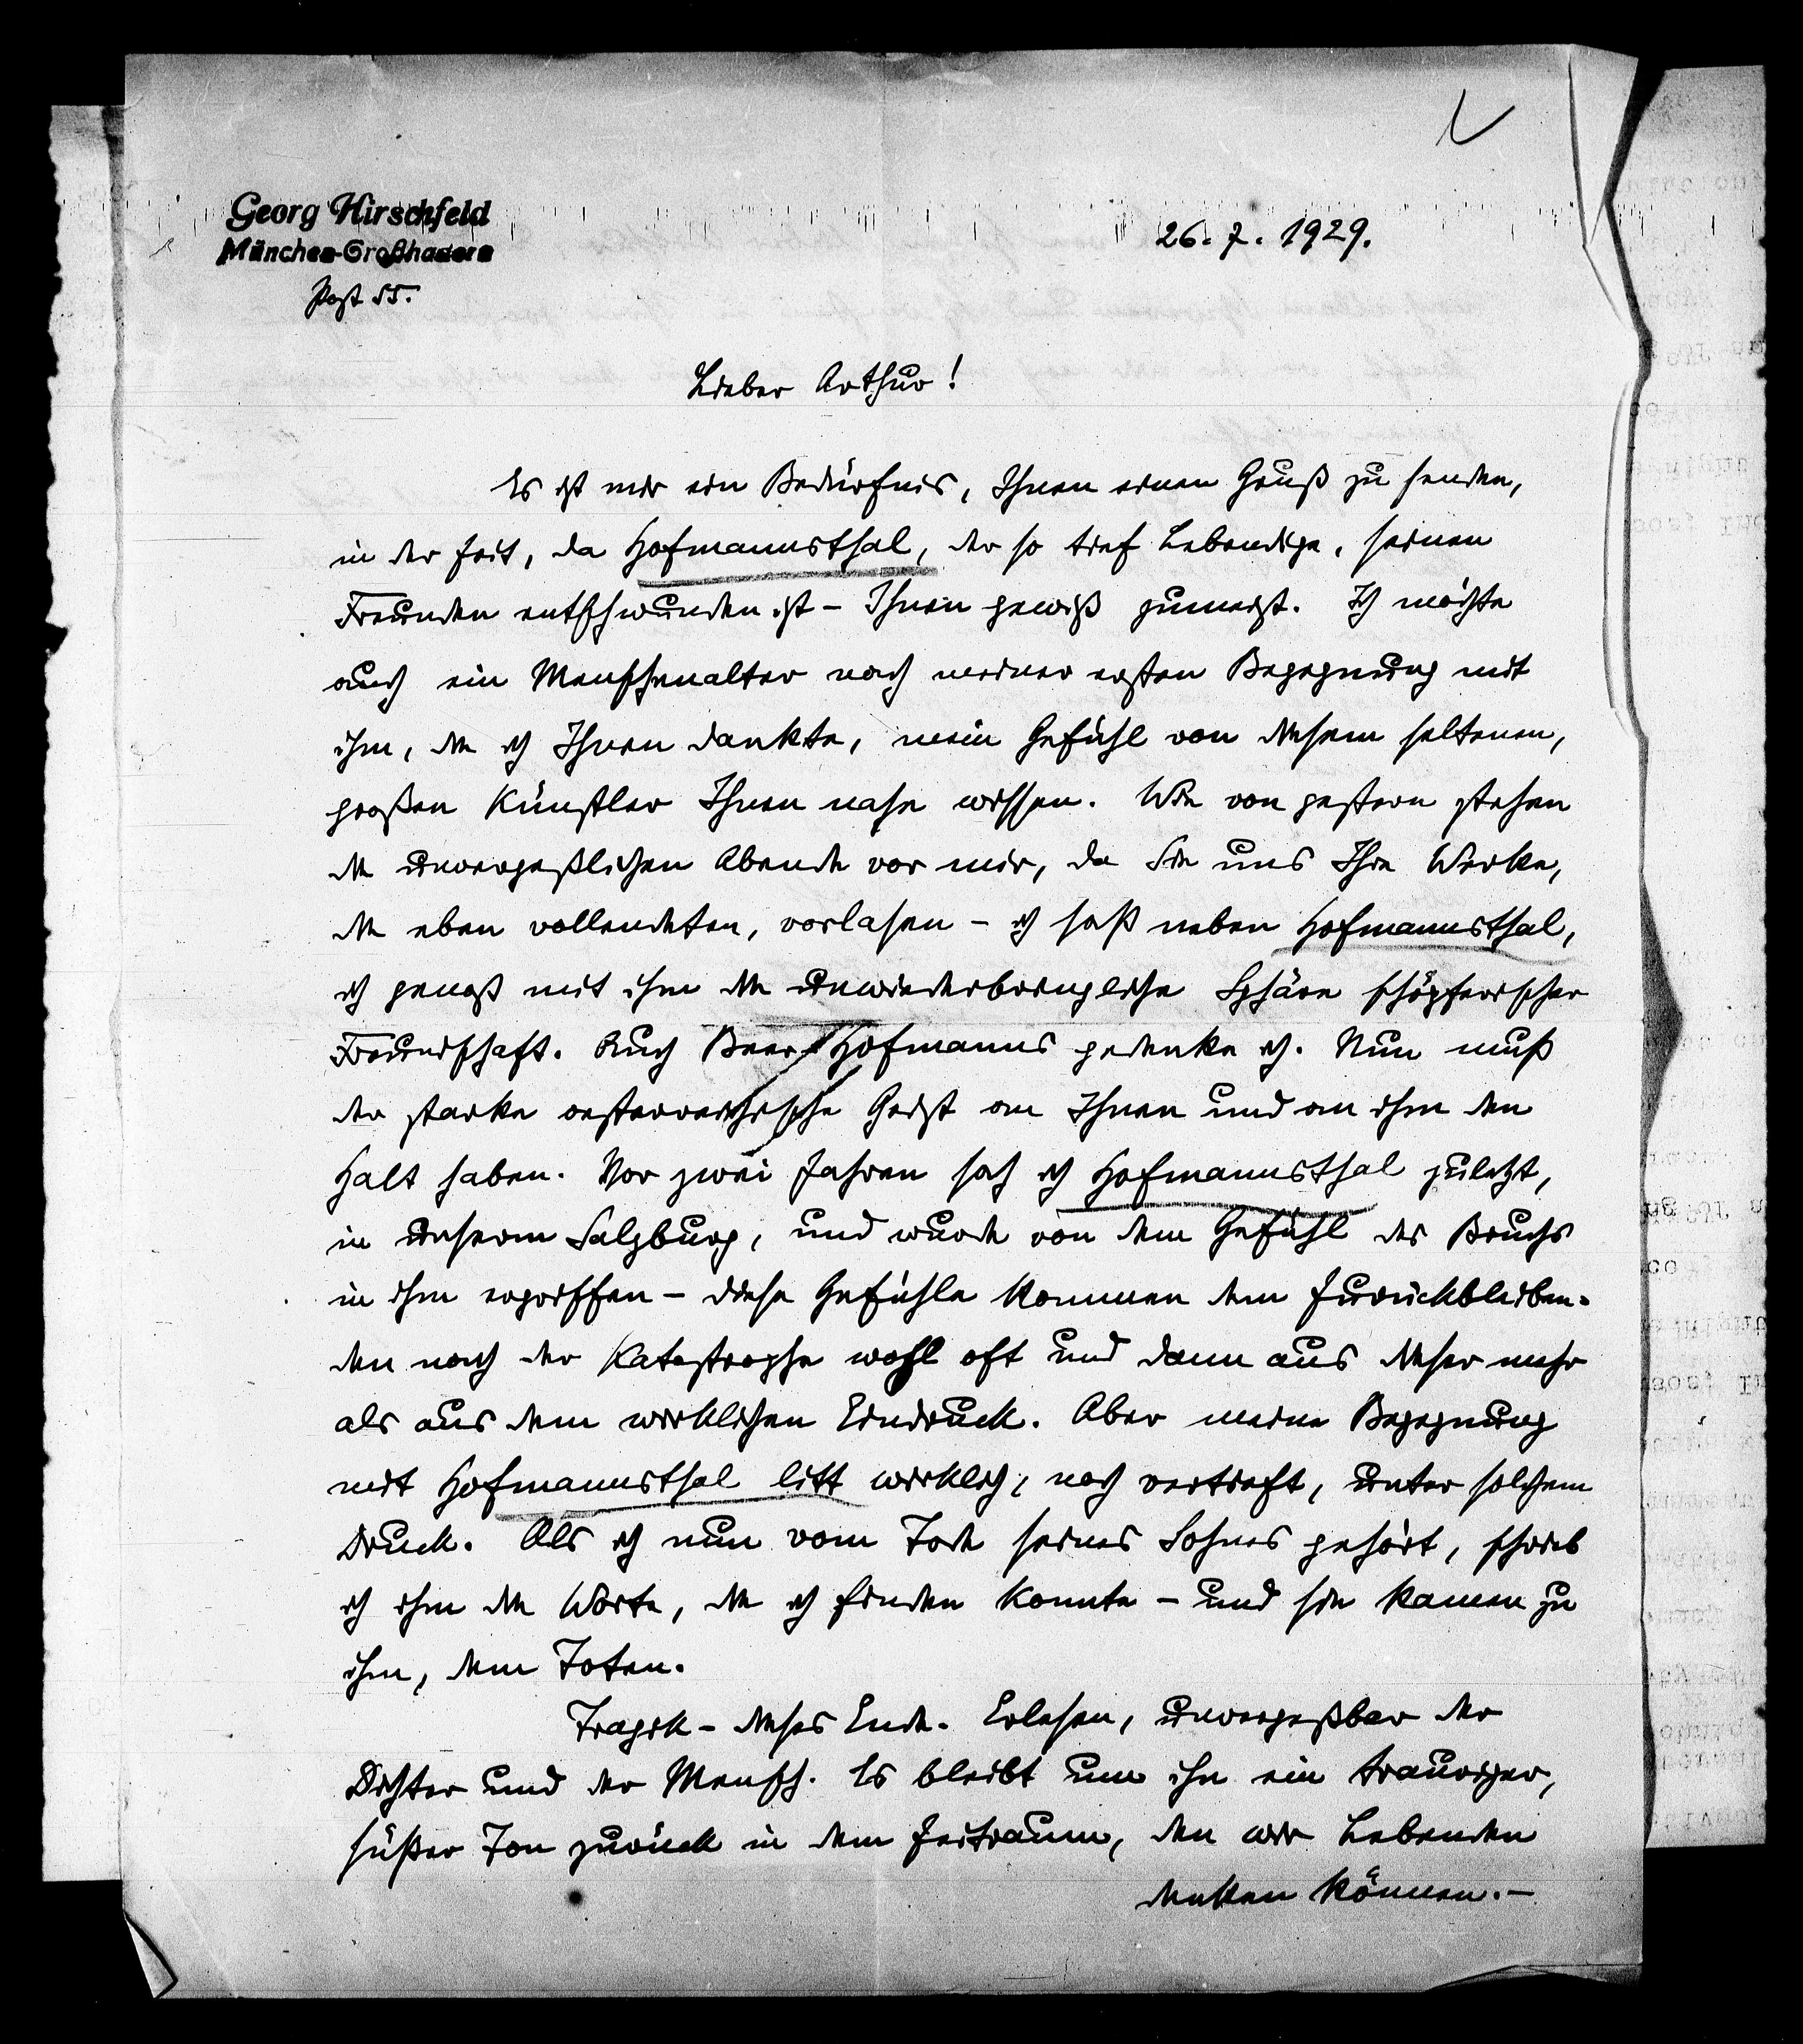 Georg Hirschfeld
München-Großhadern
Post 55.
26. 7. 1929.
Lieber Arthur!
Es ist mir ein Bedürfnis, Ihnen einen Gruß zu senden,
in der Zeit, da Hofmannsthal, der so tief Lebendige, seinen
Freunden entschwunden ist – Ihnen gewiß zumeist. Ich möchte
auch ein Menschenalter nach meiner ersten Begegnung mit
ihm, die ich Ihnen dankte, mein Gefühl von diesem seltenen,
großen Künstler Ihnen nahe wissen. Wie von gestern stehen
die unvergeßlichen Abende vor mir, da Sie uns Ihre Werke,
die eben vollendeten, vorlasen – ich saß neben Hofmannsthal,
ich genoß mit ihm die unwiederbringliche Sphäre schöpferischer
Freundschaft. Auch Beer-Hofmanns gedenke ich. Nun muß
der starke oesterreichische Geist an Ihnen und an ihm den
Halt haben. Vor zwei Jahren sah ich Hofmannsthal zuletzt,
in unserm Salzburg, und wurde von dem Gefühl des Bruchs
in ihm ergriffen – diese Gefühle kommen dem Zurückbleiben-
den nach der Katastrophe wohl oft und dann aus dieser mehr
als aus dem wirklichen Eindruck. Aber meine Begegnung
mit Hofmannsthal litt wirklich, noch vertieft, unter solchem
Druck. Als ich nun vom Tode seines Sohnes gehört, schrieb
ich ihm die Worte, die ich finden konnte – und sie kamen zu
ihm, dem Toten.
Tragik – dieses Ende. Erlesen, unvergeßbar der
Dichter und der Mensch. Es bleibt um ihn ein trauriger,
süßer Ton zurück in dem Zeitraum, den wir Lebenden
denken können. –